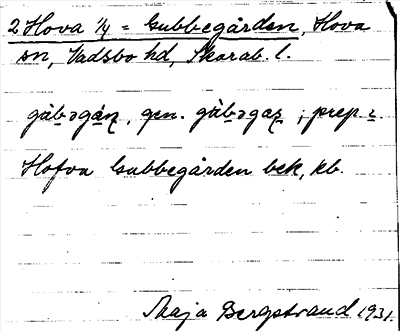 2 Hova 1/4 = Gubbegården, Hova
sn, Vadsbo hd, Skarab. l.
gen. ; prep.
Hofva Gubbegården bek, kb.
Maja Bergstrand 1931.